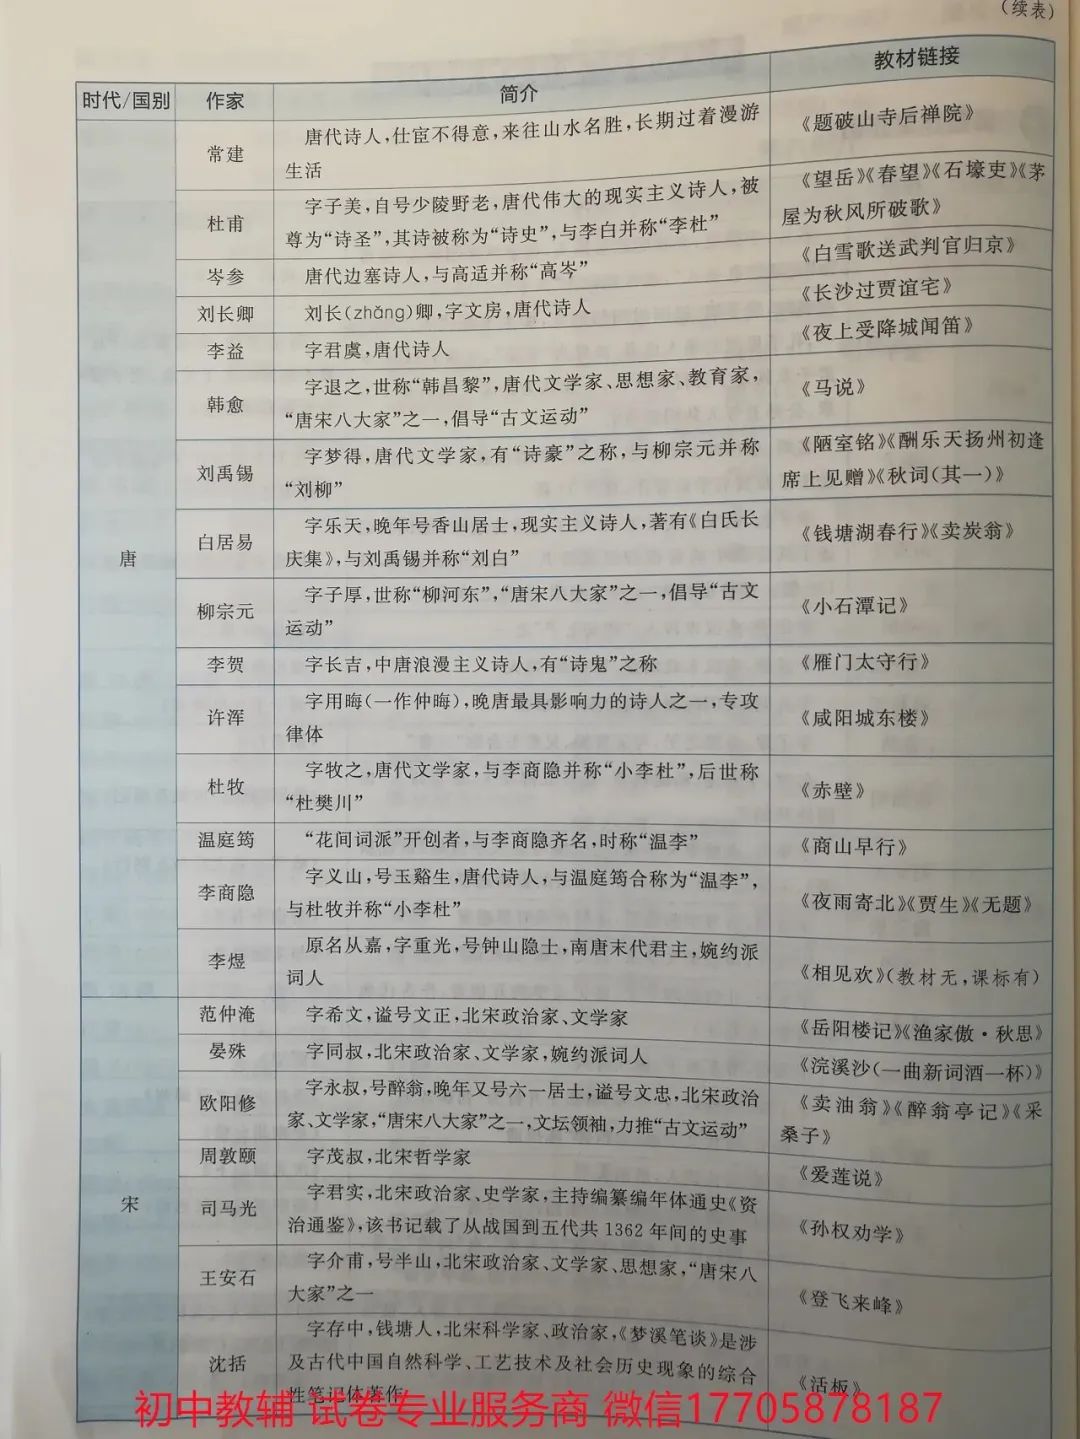 （续表）
时代/国别 作家 简介 教材链接
唐
常建 唐代诗人,仕宦不得意,来往山水名胜,长期过着漫游
生活 《题破山寺后禅院》
杜甫 字子美,自号少陵野老,唐代伟大的现实主义诗人,被
尊为“诗圣”,其诗被称为“诗史”,与李白并称“李杜”
《望岳》《春望》《石壕吏》《茅
屋为秋风所破歌》
岑参 唐代边塞诗人,与高适并称“高岑” 《白雪歌送武判官归京》
刘长卿 刘长(zhǎng)卿,字文房,唐代诗人 《长沙过贾谊宅》
李益 字君虞,唐代诗人 《夜上受降城闻笛》
韩愈 字退之,世称“韩昌黎”,唐代文学家、思想家、教育家,
“唐宋八大家”之一,倡导“古文运动” 《马说》
刘禹锡 字梦得,唐代文学家,有“诗豪”之称,与柳宗元并称
“刘柳”
《陋室铭》《酬乐天扬州初逢
席上见赠》《秋词(其一)》
白居易 字乐天,晚年号香山居士,现实主义诗人,著有《白氏长
庆集》,与刘禹锡并称“刘白” 《钱塘湖春行》《卖炭翁》
柳宗元 字子厚,世称“柳河东”,“唐宋八大家”之一,倡导“古文
运动” 《小石潭记》
李贺 字长吉,中唐浪漫主义诗人,有“诗鬼”之称 《雁门太守行》
许浑 字用晦(一作仲晦),晚唐最具影响力的诗人之一,专攻
律体 《咸阳城东楼》
杜牧 字牧之,唐代文学家,与李商隐并称“小李杜”,后世称
“杜樊川” 《赤壁》
温庭筠 “花间词派”开创者,与李商隐齐名,时称“温李” 《商山早行》
李商隐 字义山,号玉谿生,唐代诗人,与温庭筠合称为“温李”,
与杜牧并称“小李杜” 《夜雨寄北》《贾生》《无题》
李煜 原名从嘉,字重光,号钟山隐士,南唐末代君主,婉约派
词人 《相见欢》(教材无,课标有)
宋
范仲淹 字希文,谥号文正,北宋政治家、文学家 《岳阳楼记》《渔家傲·秋思》
晏殊 字同叔,北宋政治家、文学家,婉约派词人 《浣溪沙(一曲新词酒一杯)》
欧阳修 字永叔,号醉翁,晚年又号六一居士,谥号文忠,北宋政治
家、文学家,“唐宋八大家”之一,文坛领袖,力推“古文运动”
《卖油翁》《醉翁亭记》《采
桑子》
周敦颐 字茂叔,北宋哲学家 《爱莲说》
司马光 字君实,北宋政治家、史学家,主持编纂编年体通史《资
治通鉴》,该书记载了从战国到五代共 1362 年间的史事 《孙权劝学》
王安石 字介甫,号半山,北宋政治家、文学家、思想家,“唐宋八
大家”之一 《登飞来峰》
沈括 字存中,钱塘人,北宋科学家、政治家,《梦溪笔谈》是涉
及古代中国自然科学、工艺技术及社会历史现象的综合
性笔记体著作 《活板》
初中教辅 试卷专业服务商 微信17705878187